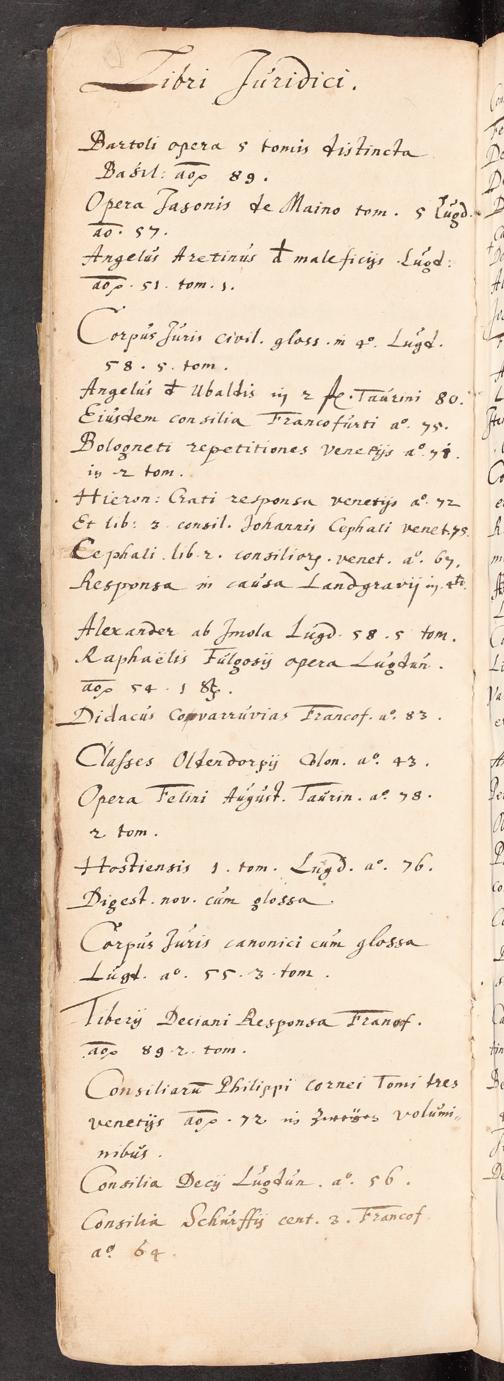 Libri Juridici.
Bartoli opera 5 tomis distincta
Basil: aoͤ 89.
Opera Jasonis de Maino tom. 5 Lugd.
ao. 57.
Angelus Aretinus đ maleficijs Lugd:
51. tom. 1.
Corpus Juris civil. gloss. in 4º. Lugd.
58. 5. tom.
Angelus đ Ubaldis in 2 Taurini 80.
Eiusdem consilia Francofurti aº. 75.
Bologneti repetitiones venetijs aº.
in 2 tom.
Hieron: Grati responsa venetijs aº. 72
Et lib: 3. consil. Johannis Cephali venet. 75.
Cephali lib. 2. consilior. venet. aº. 67.
Responsa in causa Landgravij in 4to.
Alexander ab Imola Lugd. 58. 5 tom.
Raphaëlis Fulgosij opera Lugdun.
54. 1
Didacus Covarruvias Francof. aº. 83.
Classes Oldendorpij Colon. aº. 43.
Opera Felini August. Taurin. aº. 78.
2 tom.
Hostiensis 1. tom. Lugd. aº. 76.
Digest. nov. cum glossa.
Corpus Juris canonici cum glossa
Lugd. aº. 55. 3. tom.
Tiberij Deciani Responsa Francof.
89. 2. tom.
Consiliarū Philippi cornei Tomi tres
venetijs 72 in volumi-
nibus.
Consilia Decij Lugdun. aº. 56.
Consilia Schurffij cent. 3. Francof
aº 64.